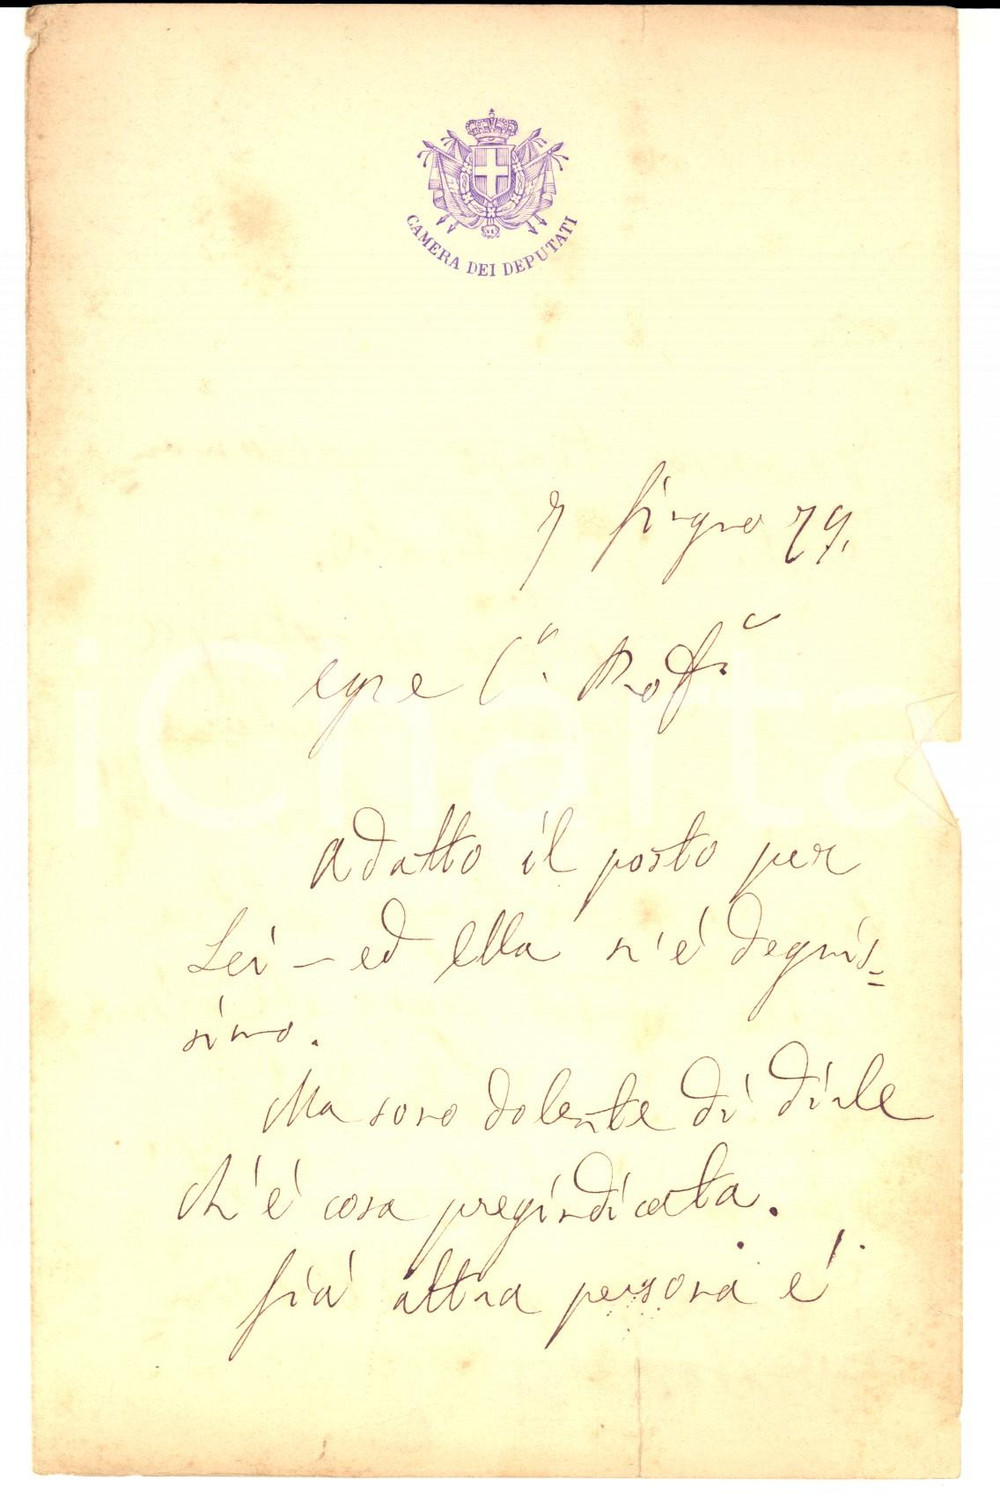 CAMERA DEI DEPUTATI
7 Giugno 79.
egre C.° Prof.r
adatto il posto per
Lei – ed ella n'è degnis=
simo.
Ma sono dolente di dirle
ch'è cosa pregiudicata.
Già altra persona è
iCharta